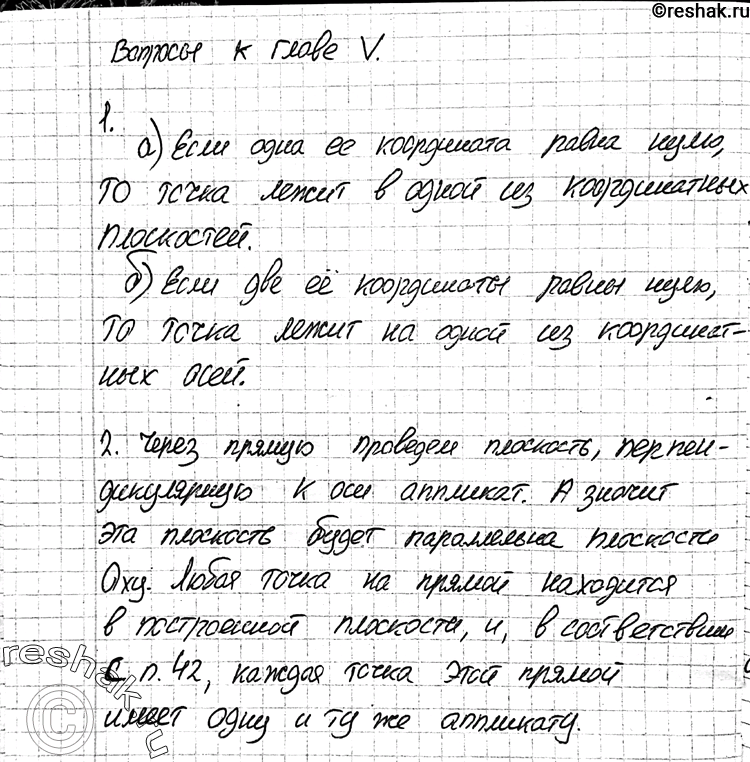 ©reshak.ru
Вопросы к главе V.
1.
а) Если одна ее координата равна нулю,
то точка лежит в одной из координатных
плоскостей.
б) Если две её координаты равны нулю,
то точка лежит на одной из координат-
ных осей.
2. Через прямую проведем плоскость, перпен-
дикулярную к оси аппликат. А значит
эта плоскость будет параллельна плоскости
Oxy. Любая точка на прямой находится
в построенной плоскости, и, в соответствии
с п. 42, каждая точка этой прямой
имеет одну и ту же аппликату.
reshak.ru
©